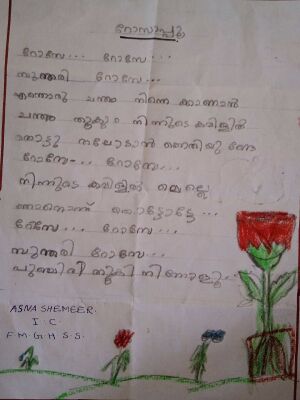 റോസാപ്പൂ
റോസേ... റോസേ...
സുന്ദരി റോസേ...
എന്തൊരു ചന്തം നിന്നെ കാണാൻ
ചന്തം തൂകും നിന്നുടെ കവിളിൽ
തൊട്ടു തലോടാൻ
റോസേ... റോസേ...
നിന്നുടെ കവിളിൽ മെല്ലെ
ഞാനൊന്ന് തൊട്ടോട്ടേ...
റോസേ... റോസേ...
സുന്ദരി റോസേ...
പുഞ്ചിരി തൂകി
ASNA SHEMEER.
I. C.
F. M. G. H. S. S.